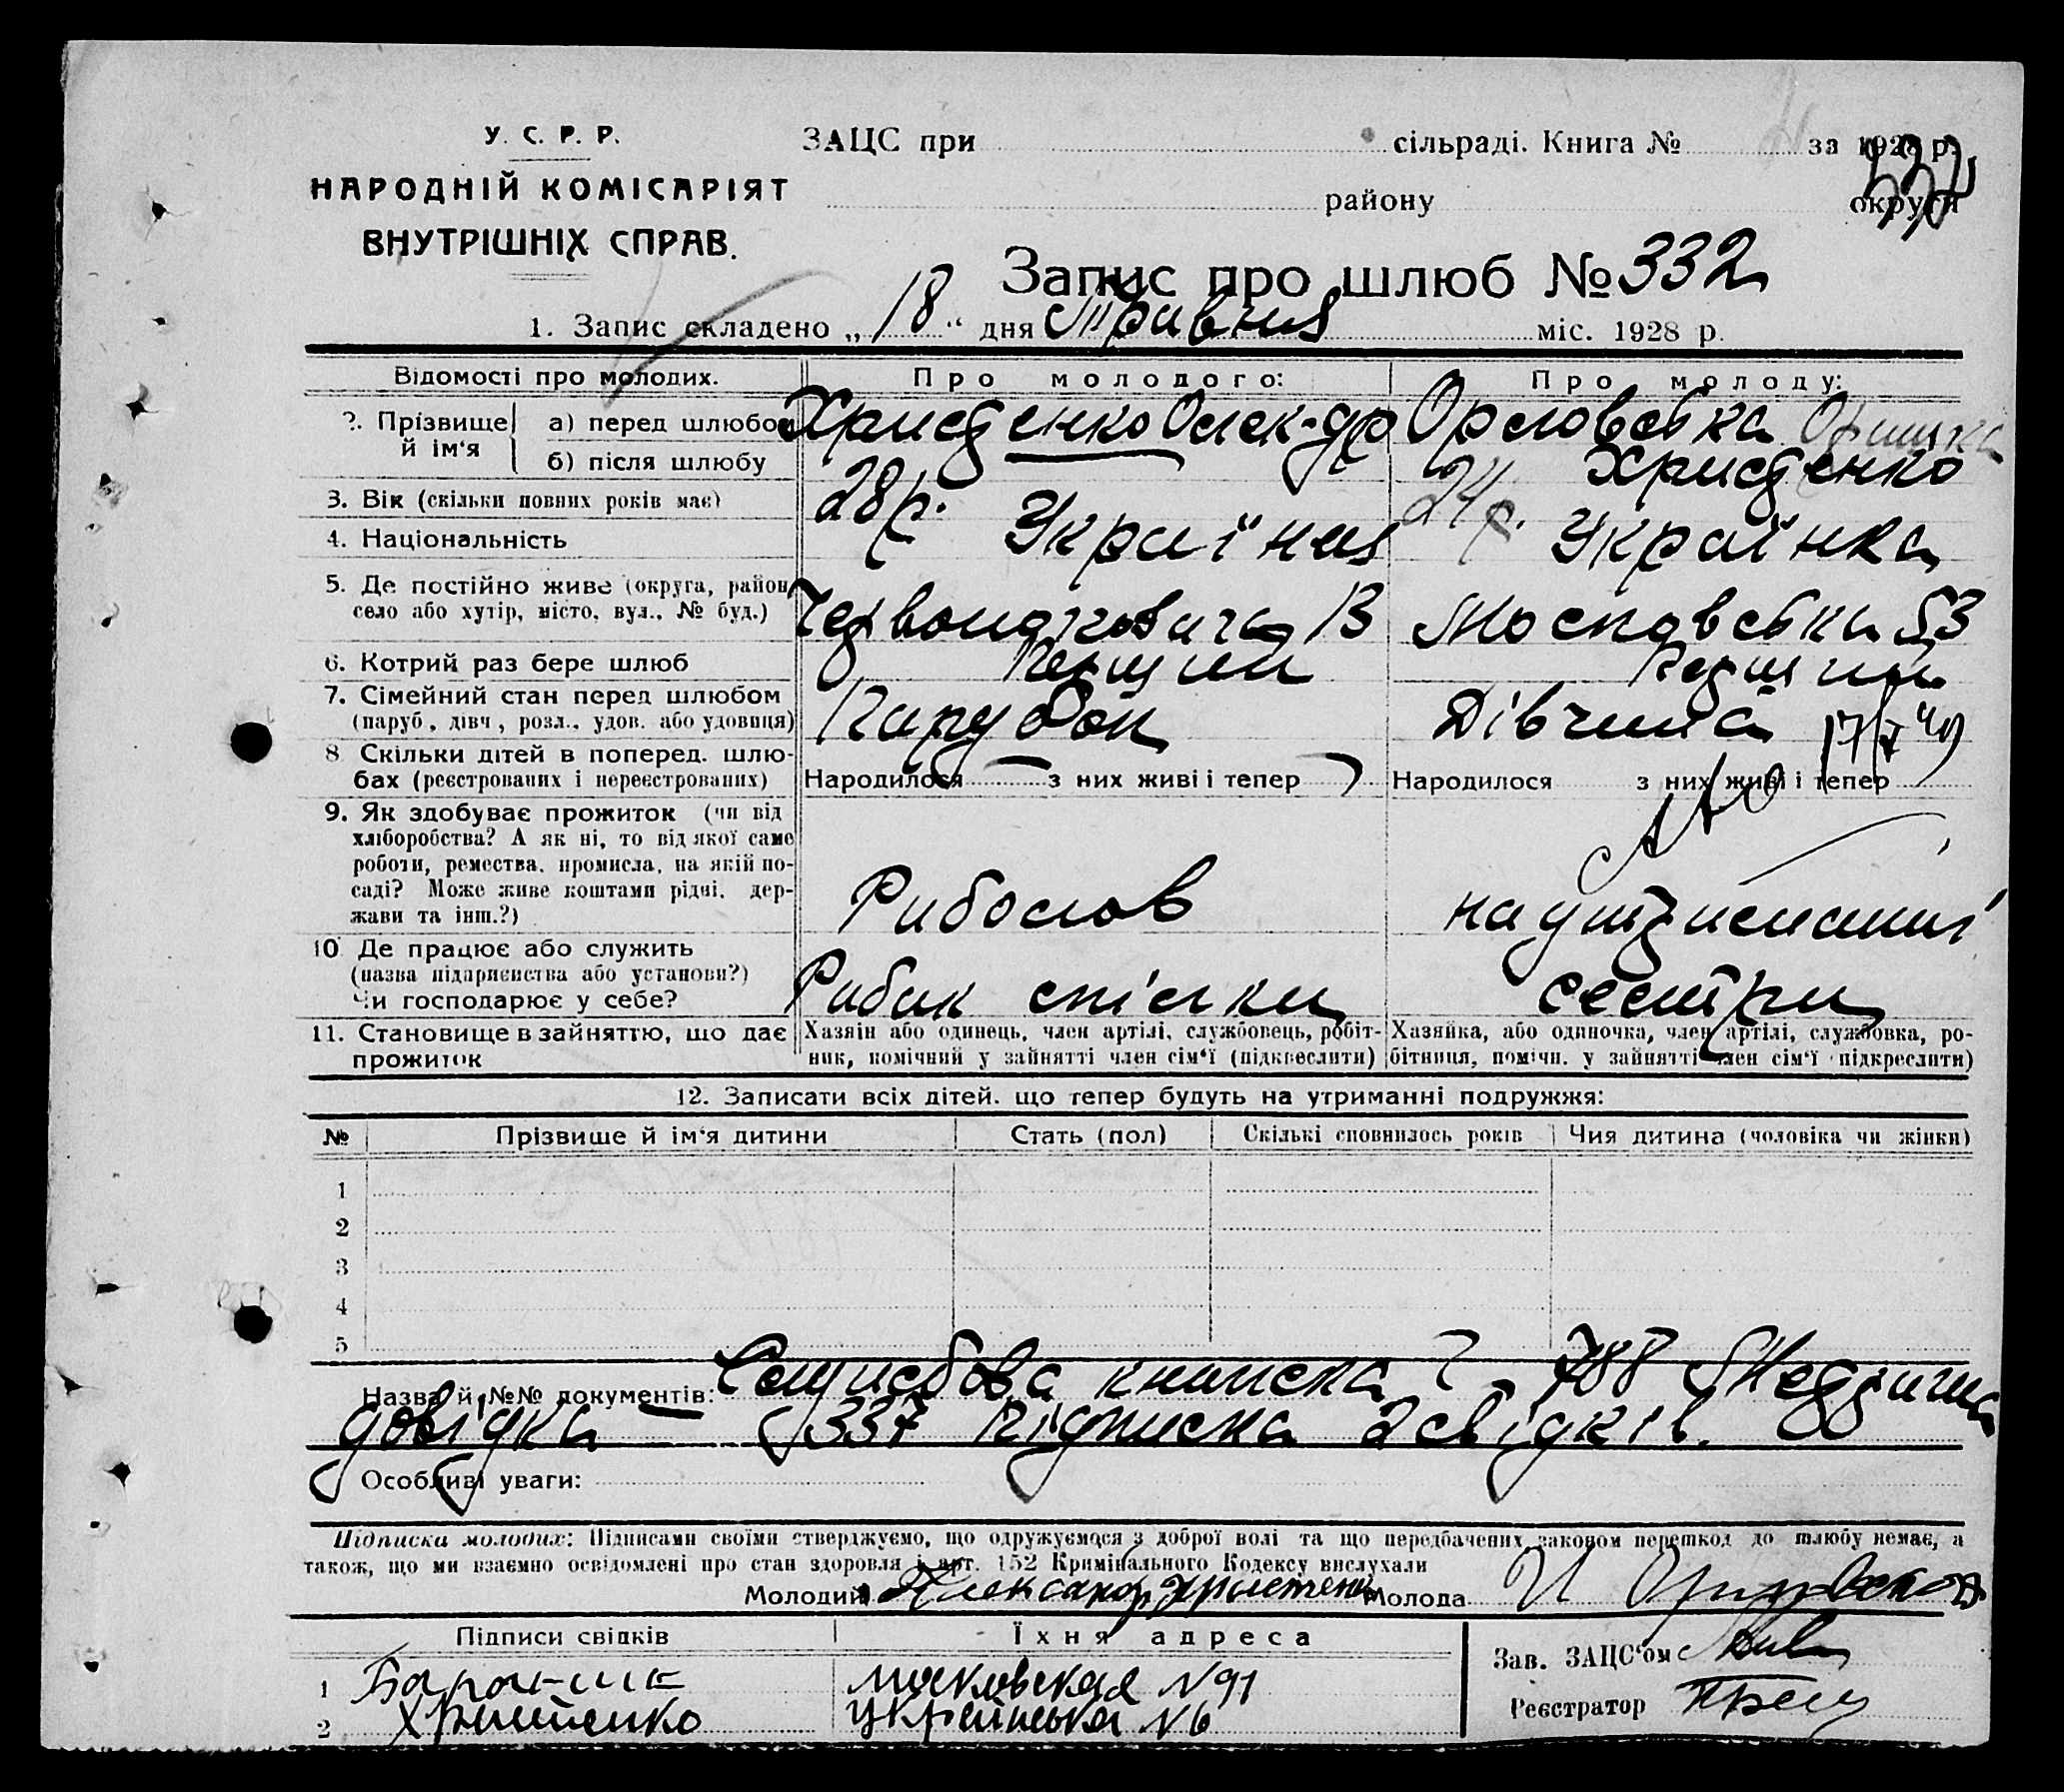 У. С. Р. Р.
НАРОДНІЙ КОМІСАРІЯТ
ВНУТРІШНІХ СПРАВ.
ЗАЦС при сільраді. Книга № за 1928 р.
району округи
Запис про шлюб № 332
1. Запис складено „ 18 “ дня Травня міс. 1928 р.
Відомості про молодих. Про молодого: Про молоду:
2. Прізвище й ім‘я
а) перед шлюбом Христенко Олек-др Орловська Оришка
б) після шлюбу Христенко
3. Вік (скільки повних років має) 28р. 24р.
4. Національність Українец Українка
5. Де постійно живе (округа, район, село або хутір, місто, вул., № буд.) 13 Московська 53
6. Котрий раз бере шлюб Перший Перший
7. Сімейний стан перед шлюбом (паруб., дівч., розл., удов. або удовиця) Парубок Дівчина
8 Скільки дітей в поперед. шлюбах (реєстрованих і нереєстрованих) Народилося з них живі і тепер Народилося з них живі і тепер
9. Як здобуває прожиток (чи від
хліборобства? А як ні, то від якої саме
роботи, ремества, промисла, на якій по-
саді? Може живе коштами рідні, дер-
жави та інш.?) Рибослов на утриманні
10 Де працює або служить
(назва підприємства або установи?)
Чи господарює у себе? Рибак спілки сестри
11. Становище в зайняттю, що дає
прожиток
Хазяїн або одинець, член артілі, службовець, робіт-
ник, помічний у зайнятті член сім‘ї (підкреслити)
Хазяйка, або одиночка, член артілі, службовка, ро-
бітниця, помічн. у зайнятті член сім‘ї (підкреслити)
12. Записати всіх дітей. що тепер будуть на утриманні подружжя:
№ Прізвище й ім‘я дитини Стать (пол) Скількі сповнилось років Чия дитина (чоловіка чи жінки)
1
2
3
4
5
Назва й №№ документів: Службова книжка 788 Медична
довідка 337 Підписка 2 свідків.
Особливі уваги:
Підписка молодих: Підписами своїми стверджуємо, що одружуємося з доброї волі та що передбачених законом перешкод до шлюбу немає, а
також, що ми взаємно освідомлені про стан здоровля і арт. 152 Кримінального Кодексу вислухали
Молодий Александр Христенко Молода И Орловская
Підписи свідків Їхня адреса
Зав. ЗАЦС‘ом
1 московская N 91
Реєстратор
2 Христенко Українська N 6